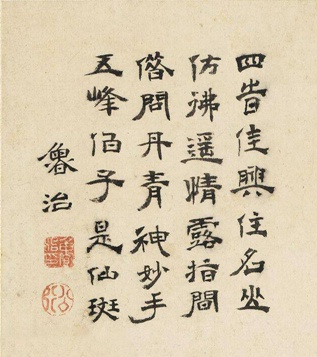 四旹佳興住名山
仿彿遥情露指間
偺問丹青神妙手
五峰伯子是仙斑
魯治